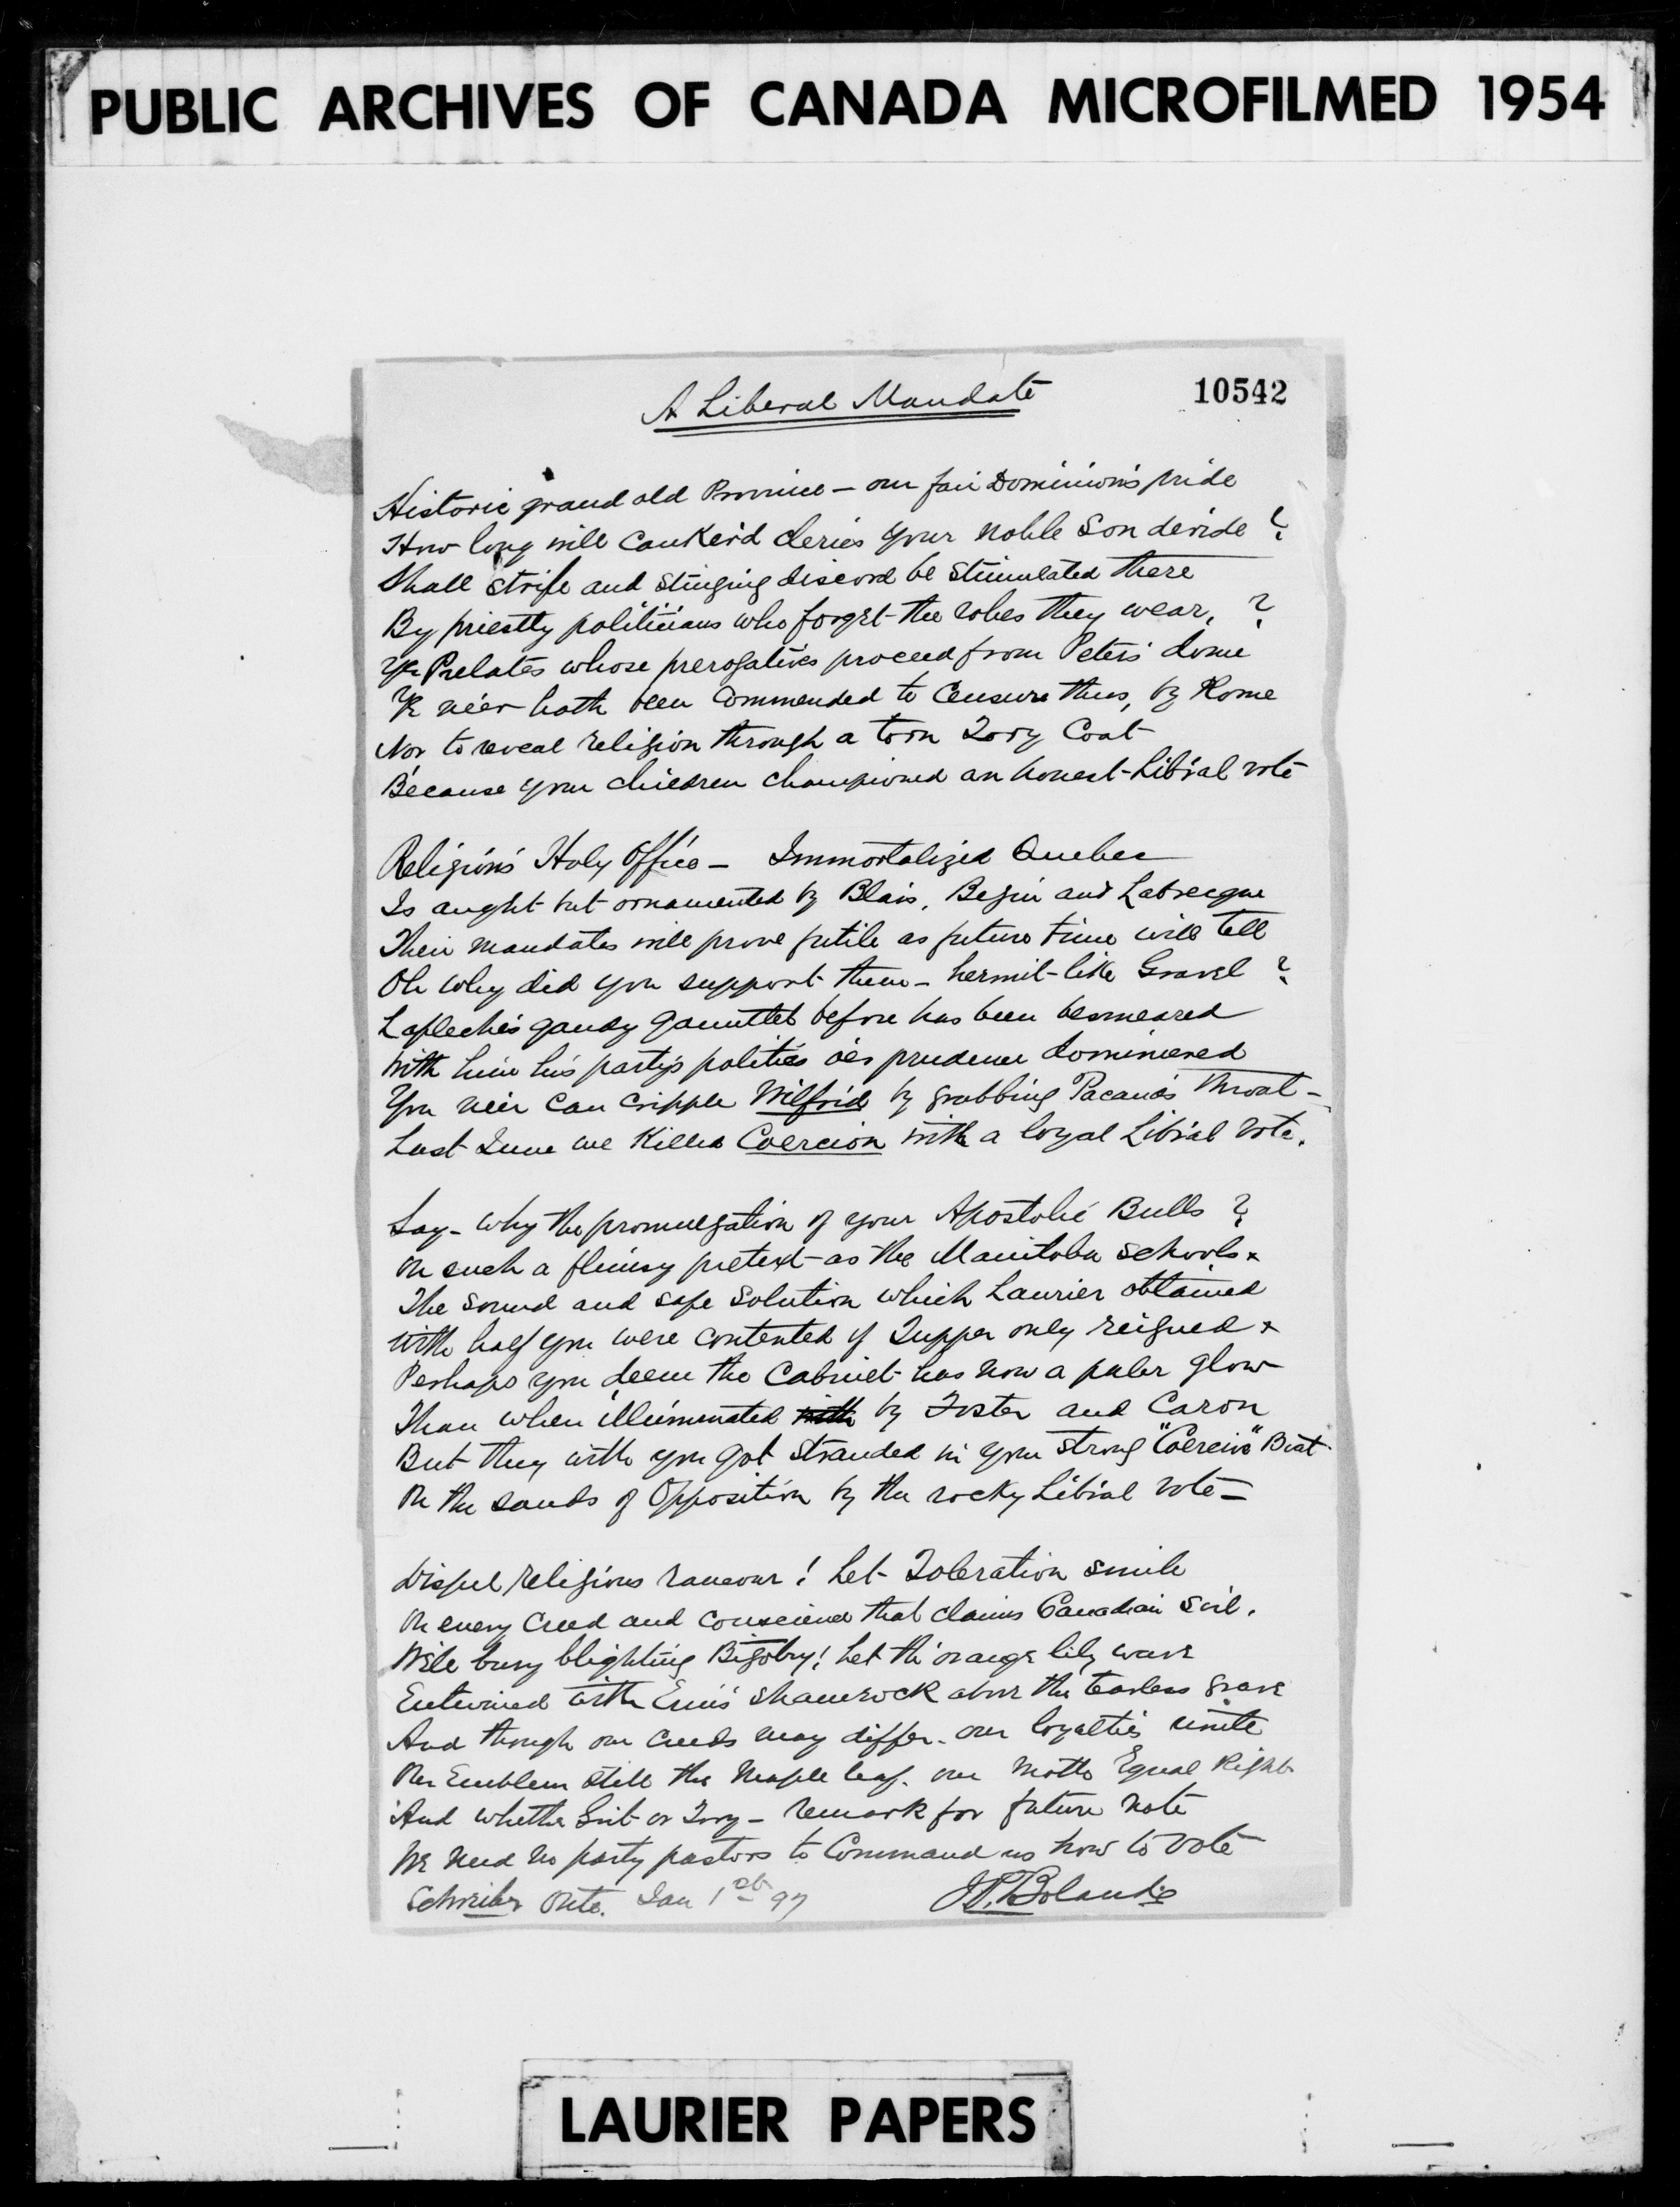 PUBLIC ARCHIVES OF CANADA MICROFILMED 1954
10542
A Liberal Mandate
Historic grand old Province – our fair Dominion's pride
How long will Canker'd clerics your noble Son deride ?
Shall strife and stinging discord be stimulated there
By priestly politicians who forget the robes they wear, ?
Ye Prelates whose prerogatives proceed from Peters' dome
Ye ne'er hath been Commended to Censure thus, by Rome
Nor to reveal religion through a torn Tory Coat
Because your children championed an honest Lib'ral vote
Religion's Holy Office – Immortalized Quebec
Is aught but ornamented by Blais, Begin and Labrecque
Their mandates will prove futile as future time will tell
Oh why did you support them – hermit-like Gravel ?
Lafleche's gaudy gauntlet before has been besmeared
With him his party's politics o'er prudence domineered
You ne'er can cripple Wilfrid by grabbing Pacaud's throat –
Last June we Killed Coercion with a loyal Lib'ral vote.
Say – why the promulgation of your Apostolic Bulls ?
On such a flimsy pretext – as the Manitoba schools
The sound and safe solution which Laurier obtained
With half you were contented if Tupper only reigned
Perhaps you deem the Cabinet has now a paler glow
Than when illuminated with by Foster and Caron
But they with you got stranded in your strong "Coercive" Boat
On the sands of Opposition by the rocky Lib'ral vote –
Dispel religious rancour ! Let Toleration smile
On every Creed and conscience that claims Canadian soil.
We'll bury blighting Bigotry! Let th' orange lily wave
Entwined with Erin's shamrock above the tearless grave
And though our Creeds may differ – our loyalties unite
Our Emblem still the Maple leaf – our motto Equal Right
And whether Grit or Tory – remark for future note
We need no party pastors to Command us how to vote
Schreiber Onto. Jan 1st 97
J.P. Boland
LAURIER PAPERS